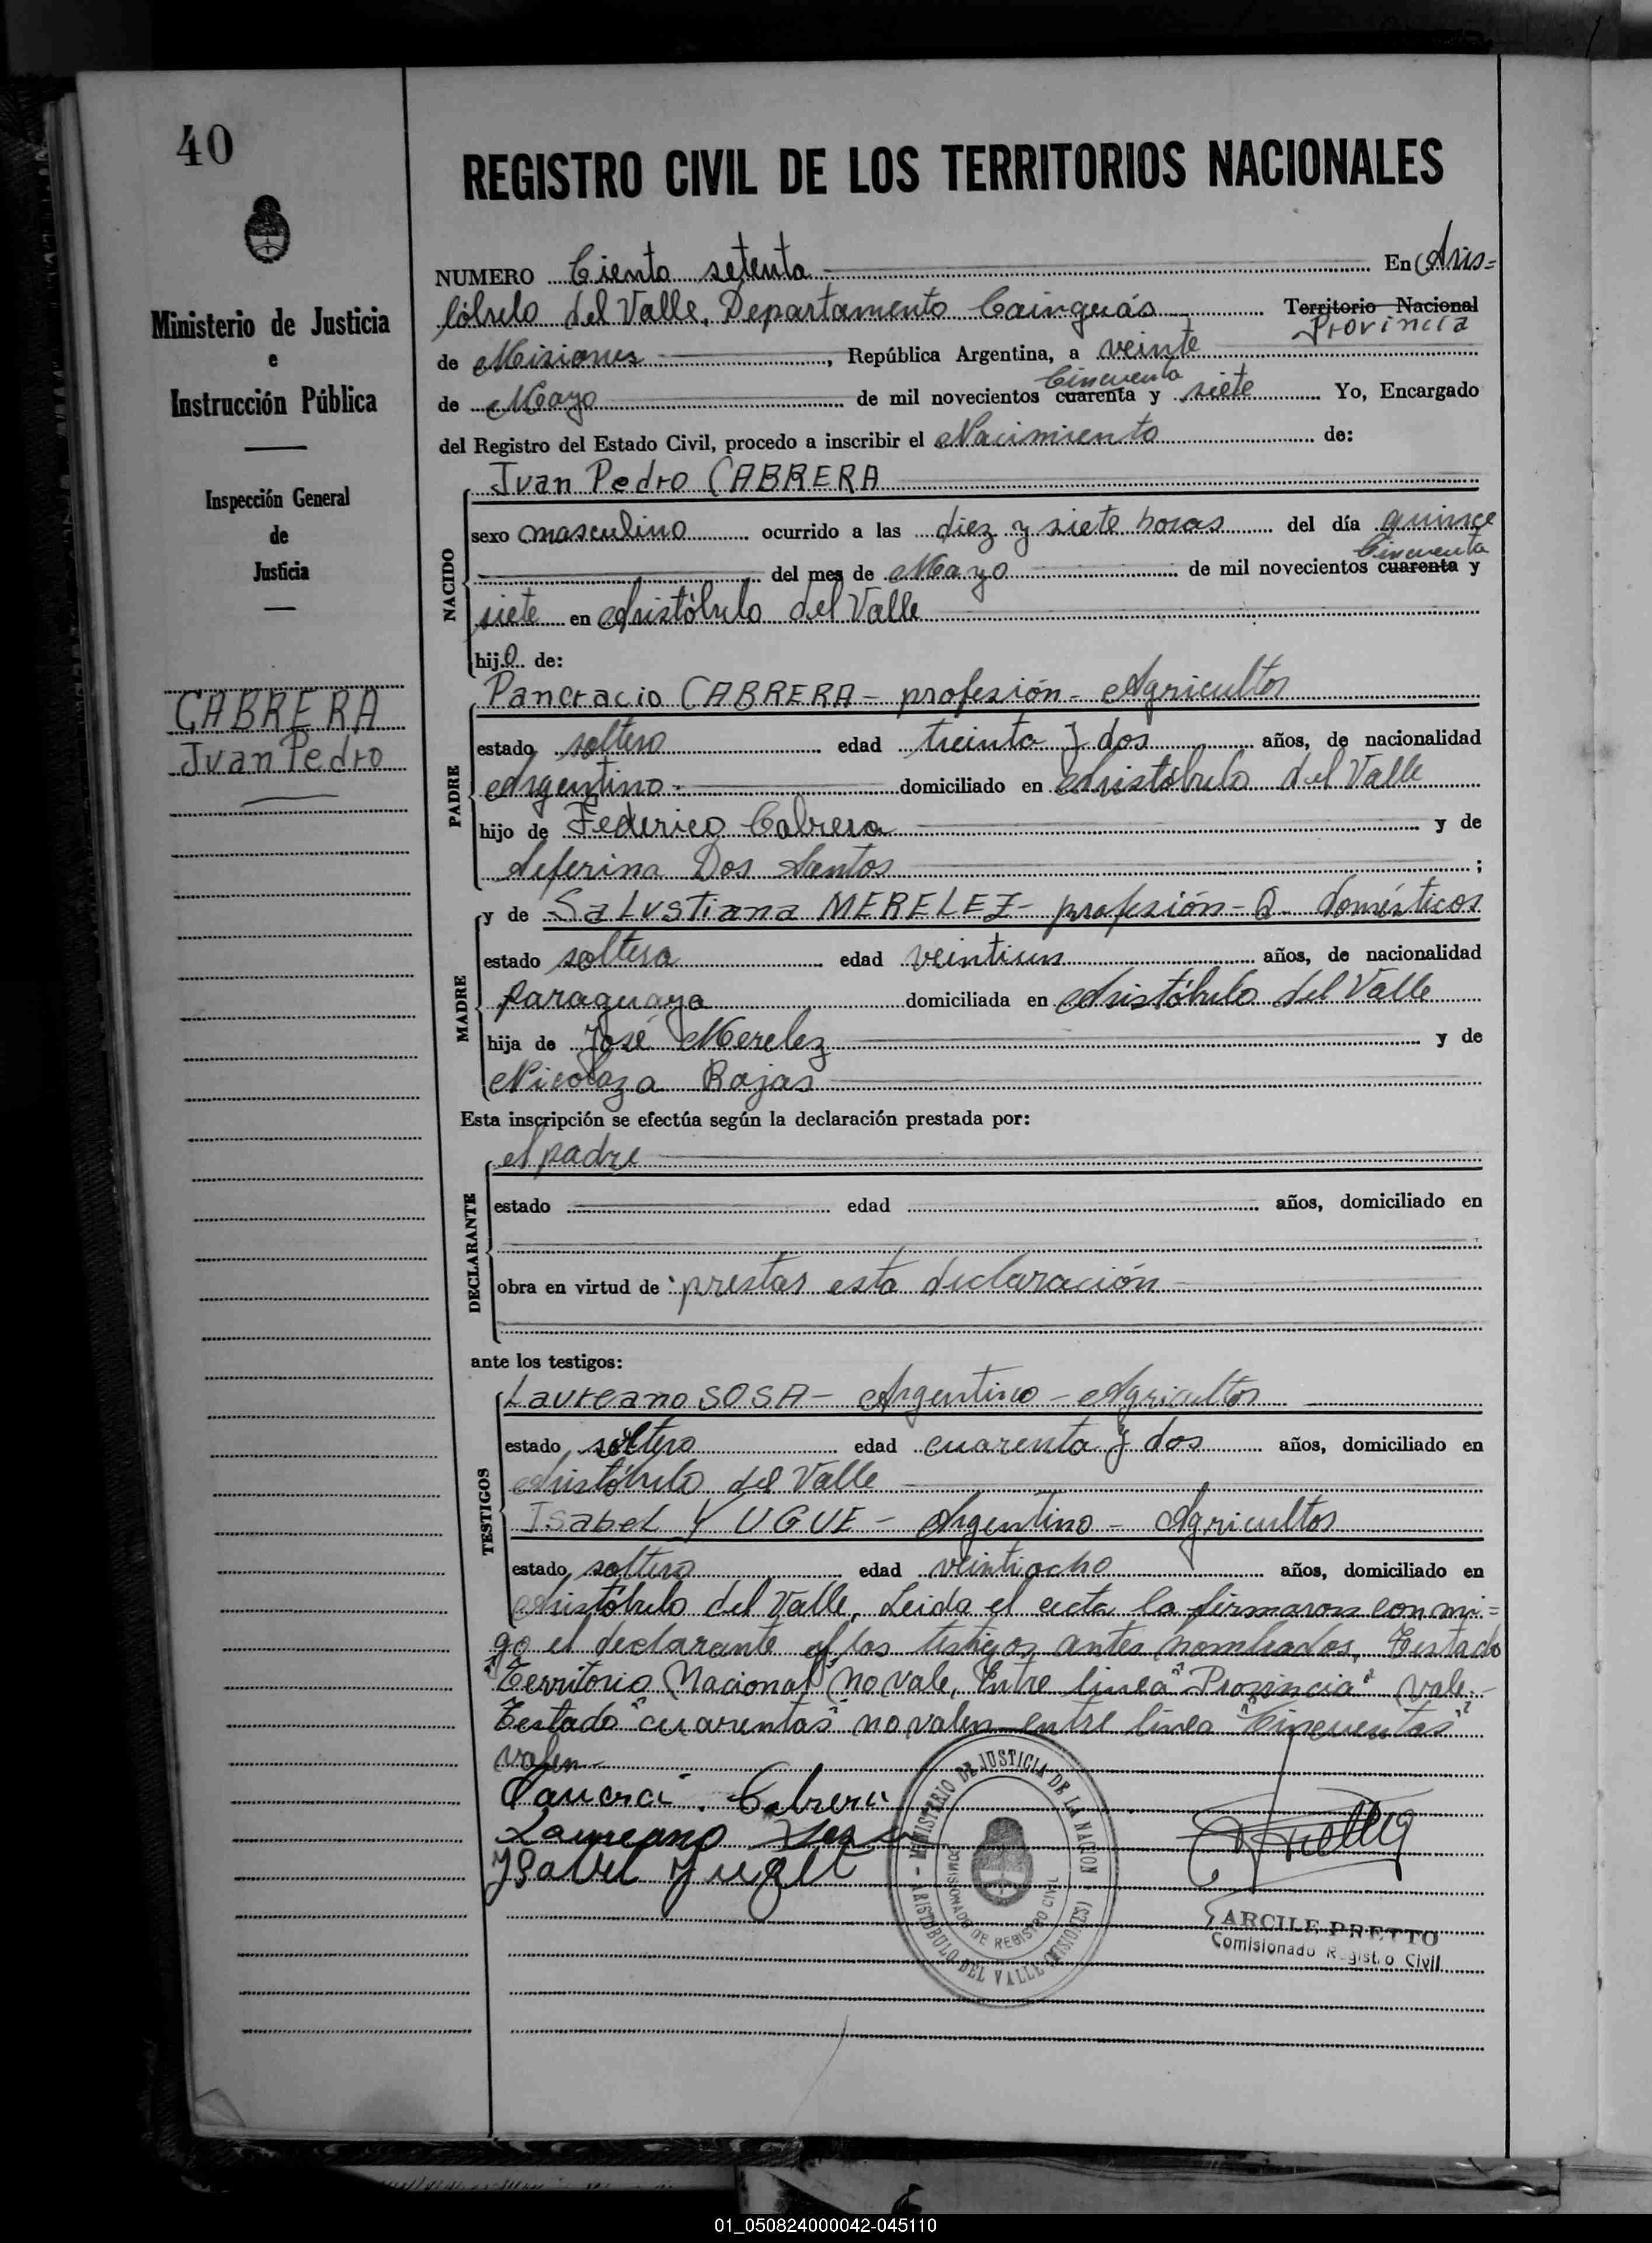 40
REGISTRO CIVIL DE LOS TERRITORIOS NACIONALES
Ministerio de Justicia
e
Instrucción Pública
Inspección General
de
Justicia
CABRERA
Juan Pedro
NUMERO Ciento setenta En Aris=
tóbulo del Valle, Departamento Cainguás Territorio Nacional
Provincia
de Misiones, República Argentina, a veinte
Cincuenta
de Mayo de mil novecientos cuarenta y siete Yo, Encargado
del Registro del Estado Civil, procedo a inscribir el Nacimiento de:
Juan Pedro CABRERA
NACIDO
sexo masculino ocurrido a las diez y siete horas del día quince
Cincuenta
del mes de Mayo de mil novecientos cuarenta y
siete en Aristóbulo del Valle
hijo de:
Pancracio CABRERA - profesión - Agricultor
PADRE
estado soltero edad treinta y dos años, de nacionalidad
Argentino - domiciliado en Aristóbulo del Valle
hijo de Federico Cabrera y de
Seferina Dos Santos ;
y de Salustiana MERELEZ - profesión - Q. domésticos
MADRE
estado soltera edad veintiun años, de nacionalidad
paraguaya domiciliada en Aristóbulo del Valle
hija de José Merelez y de
Nicolaza Rojas
Esta inscripción se efectúa según la declaración prestada por:
el padre
DECLARANTE
estado edad años, domiciliado en
obra en virtud de prestar esta declaración
ante los testigos:
Laureano SOSA - Argentino - Agricultor
TESTIGOS
estado soltero edad cuarenta y dos años, domiciliado en
Aristóbulo del Valle
Isabel YUGUE - Argentino - Agricultor
estado soltero edad veintiocho años, domiciliado en
Aristóbulo del Valle, Leida el acta la firmaron conmi=
go el declarante y los testigos antes nombrados, Testado
"Territorio Nacional" no vale, Entre linea "Provincia" vale.-
Testado "cuarentas" no valen entre linea "Cincuentas"
valen-
Cabrera
Laureano Sosa
Ysabel
MINISTERIO DE JUSTICIA DE LA NACION
COMISIONADO DE REGISTRO CIVIL
ARISTOBULO DEL VALLE (MISIONES)
ARCILE PRETTO
Comisionado Registro Civil
01_050824000042-045110